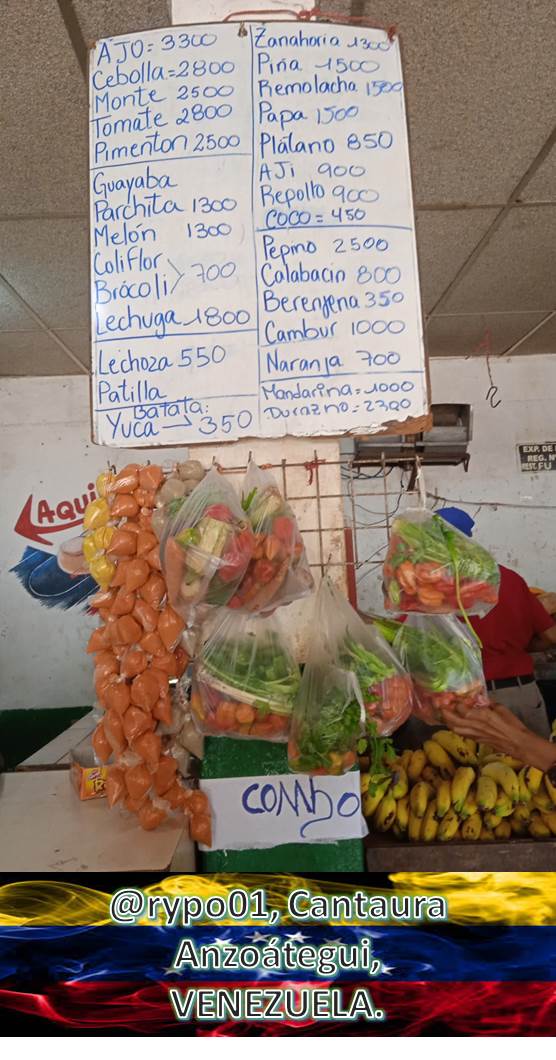 AJO= 3300
Cebolla=2800
Monte 2500
Tomate 2800
Pimenton 2500
Guayaba
Parchita 1300
Melón 1300
Coliflor
Brócoli 700
Lechuga 1800
Lechoza 550
Patilla
Batata:
Yuca → 350
Zanahoria 1300
Piña 1500
Remolacha 1500
Papa 1500
Plátano 850
AJi 900
Repollo 900
COCO = 450
Pepino 2500
Calabacin 800
Berenjena 350
Cambur 1000
Naranja 700
Mandarina=1000
Durazno=2300
Aqui
EXP. DE
REG. N
FU
COMBO
@rypo01, Cantaura
Anzoátegui,
VENEZUELA.